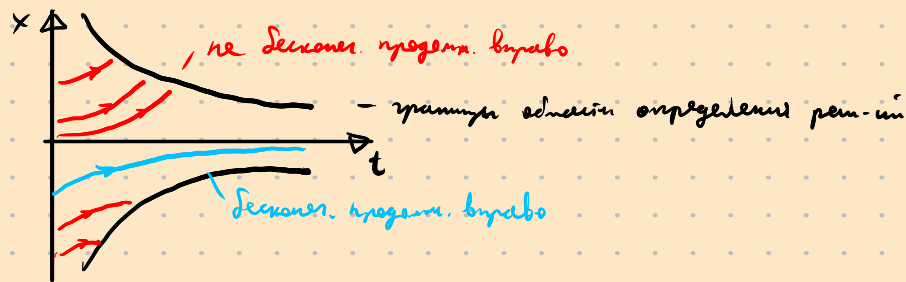 x
не бесконеч. продолж. вправо
— границы области определения реш-ий
t
бесконеч. продолж. вправо